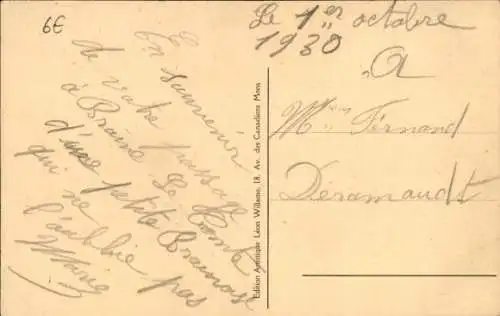 6€
En souvenir
de votre passage
à Braine Le Comte
d'une petite Brainoise
qui ne l'oublie pas
Edition Artistique Léon Willems, 18, Av. des Canadiens Mons
Le 1er octobre
1930
A
Mr Fernand
Deramaudt